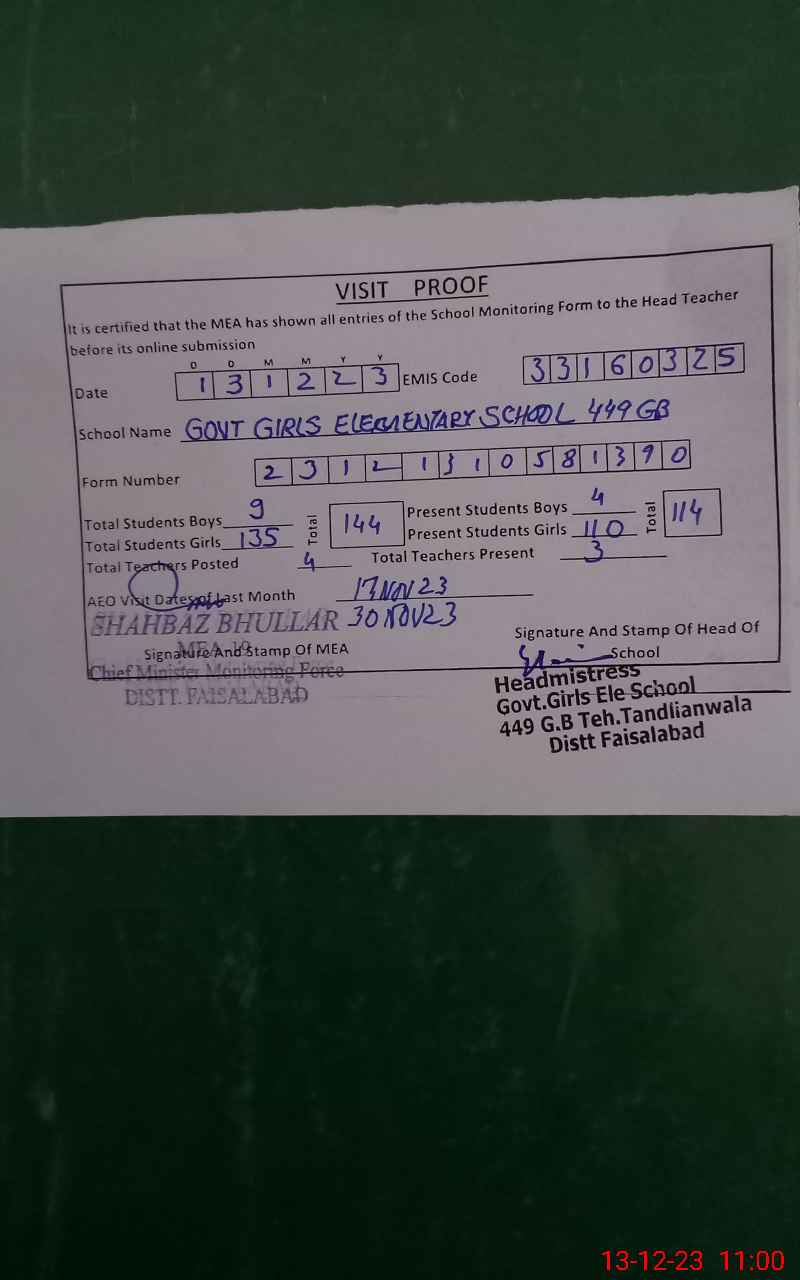 VISIT PROOF
It is certified that the MEA has shown all entries of the School Monitoring Form to the Head Teacher
before its online submission
D D M M Y Y
Date 1 3 1 2 2 3 EMIS Code 3 3 1 6 0 3 2 5
School Name GOVT GIRLS ELEMENTARY SCHOOL 449 GB
Form Number 2 3 1 2 1 3 1 0 5 8 1 3 9 0
Total Students Boys 9 Total 144 Present Students Boys 4 Total 114
Total Students Girls 135 Present Students Girls 110
Total Teachers Posted 4 Total Teachers Present 3
AEO Visit Dates of Last Month 17 NOV 23
SHAHBAZ BHULLAR 30 NOV 23
Signature And Stamp Of Head Of
Signature And Stamp Of MEA School
Chief Minister Monitoring Force
DISTT. FAISALABAD
Headmistress
Govt.Girls Ele School
449 G.B Teh.Tandlianwala
Distt Faisalabad
13-12-23 11:00